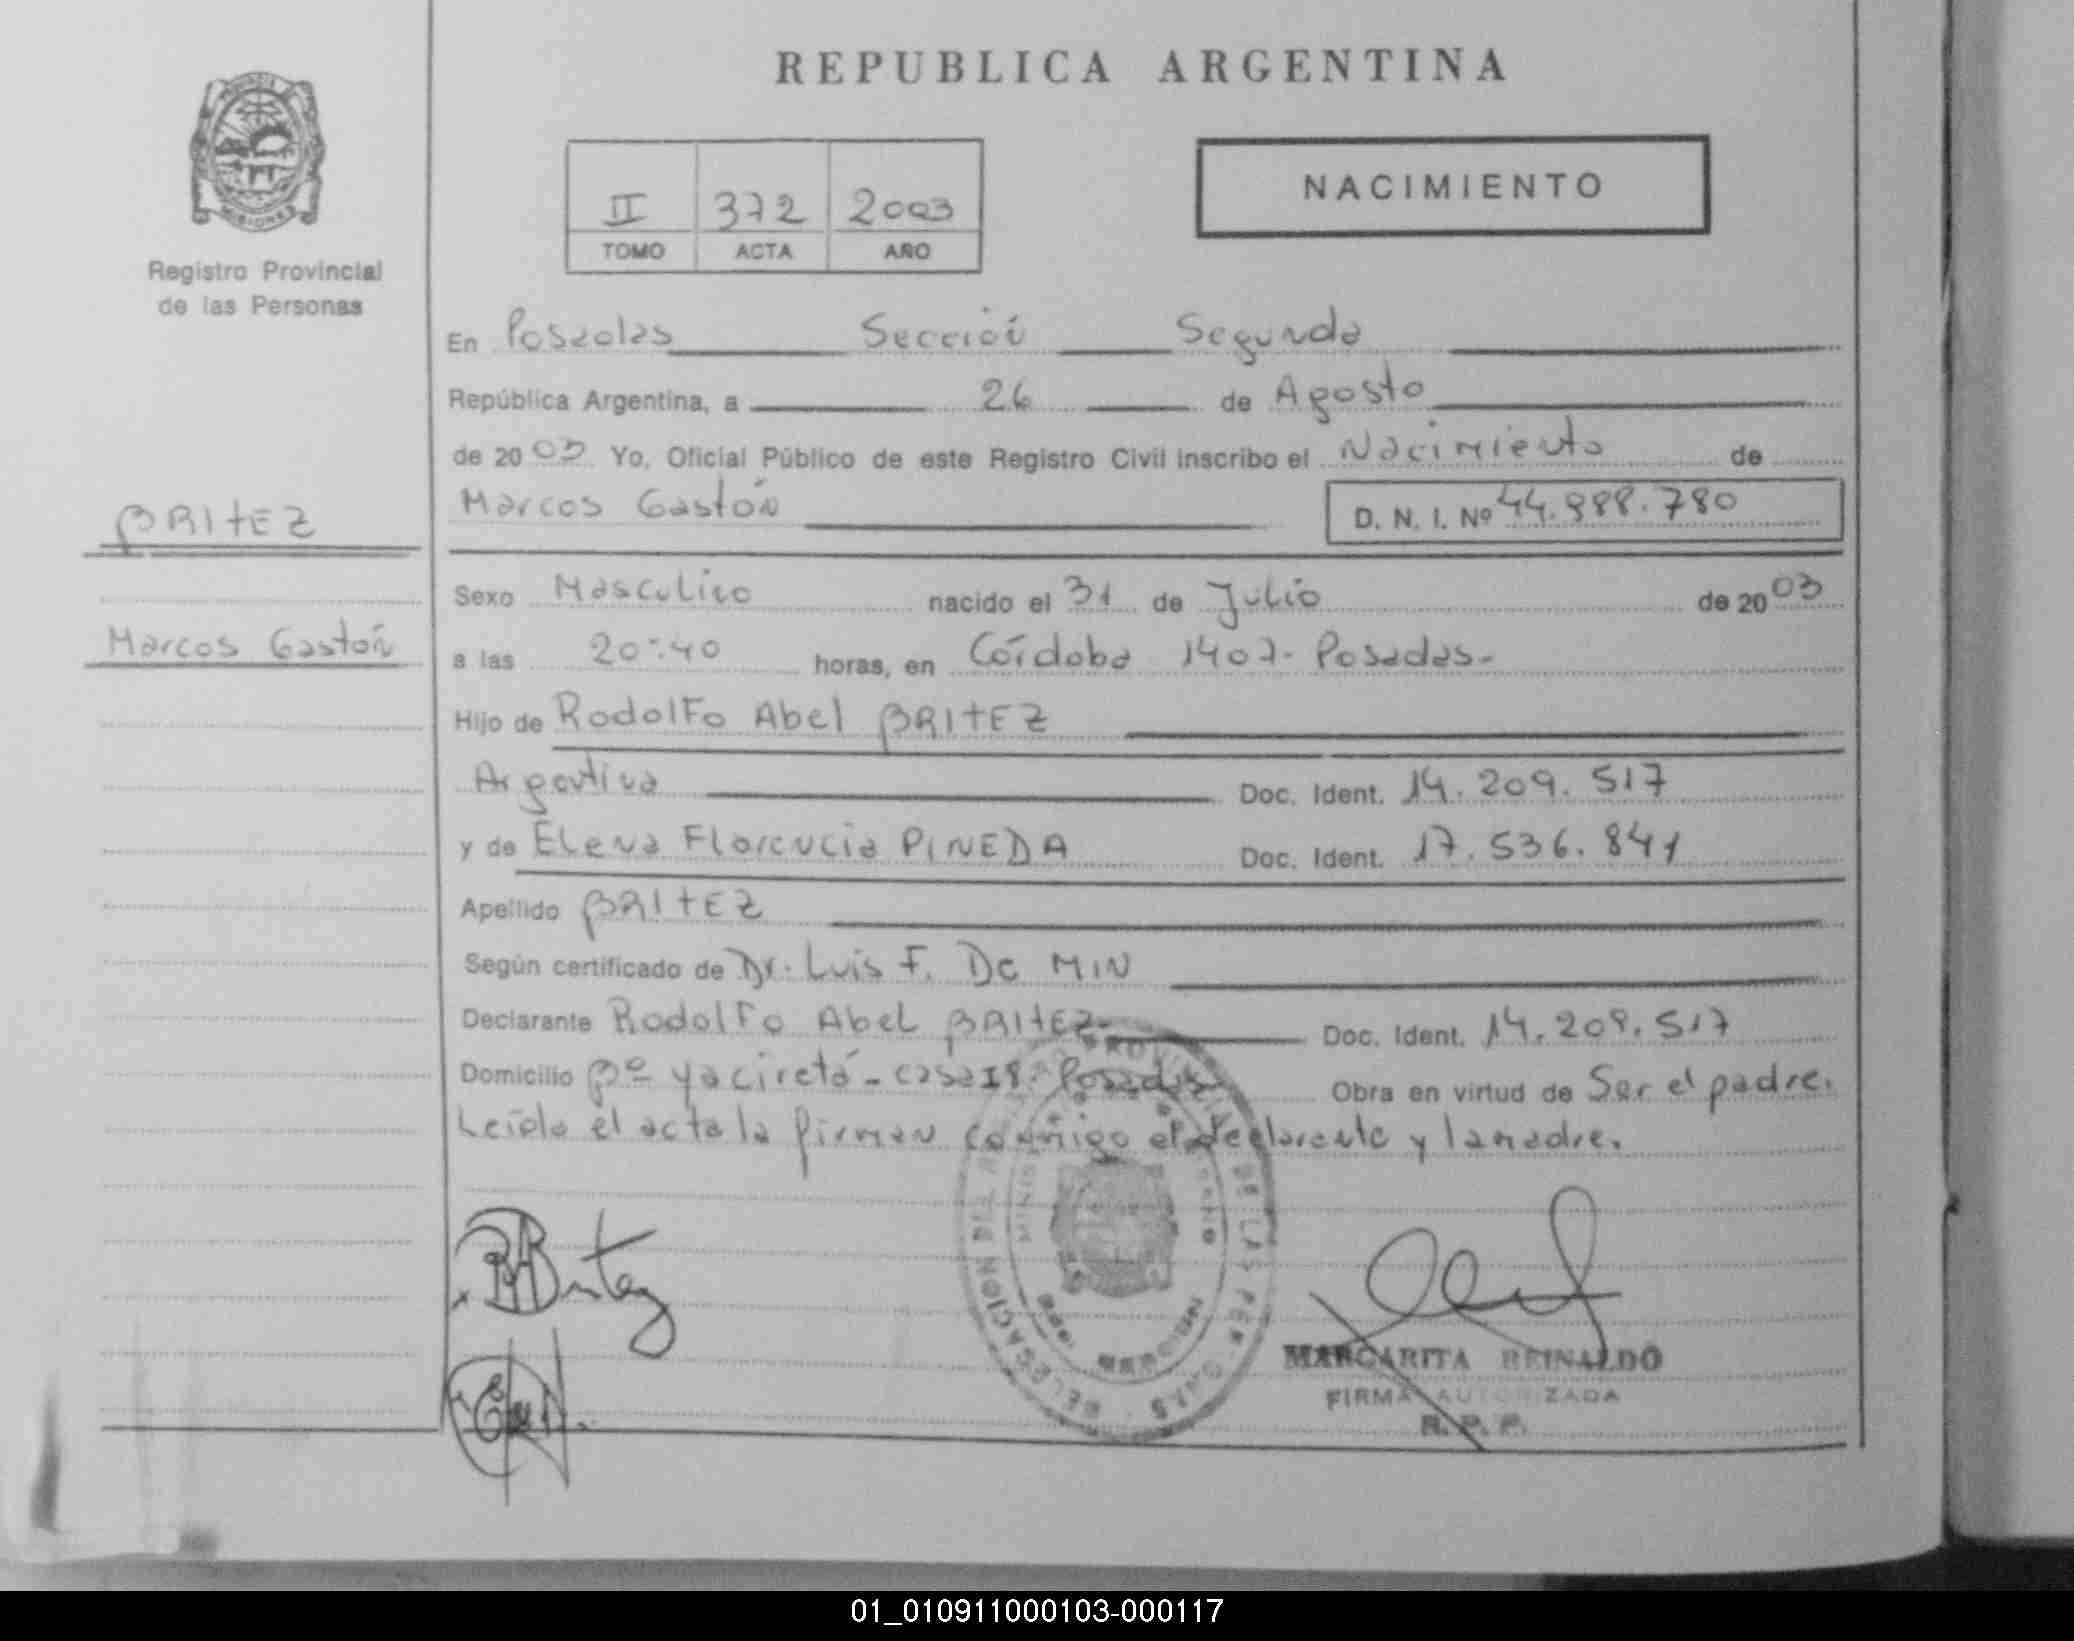 REPUBLICA ARGENTINA
PROVINCIA
MISIONES
Registro Provincial
de las Personas
II 372 2003
TOMO ACTA AÑO
NACIMIENTO
En Posadas Sección Segunda
República Argentina, a 26 de Agosto
de 2003 Yo, Oficial Público de este Registro Civil inscribo el Nacimiento de
Marcos Gastón D. N. I. Nº 44.988.780
BRITEZ
Marcos Gastón
Sexo Masculino nacido el 31 de Julio de 2003
a las 20:40 horas, en Córdoba 1407- Posadas-
Hijo de Rodolfo Abel BRITEZ
Argentina Doc. Ident. 14.209.517
y de Elena Florencia PINEDA Doc. Ident. 17.536.841
Apellido BRITEZ
Según certificado de Dr. Luis F. De MIN
Declarante Rodolfo Abel BRITEZ- Doc. Ident. 14.209.517
Domicilio Bº Yaciretá- casa 18- Posadas- Obra en virtud de Ser el padre.
Leída el acta la firman conmigo el declarante y la madre.
DELEGACION DEL REGISTRO PROVINCIAL DE LAS PERSONAS
MISIONES
Britez
MARGARITA REINALDO
FIRMA AUTORIZADA
R. P. P.
01_010911000103-000117